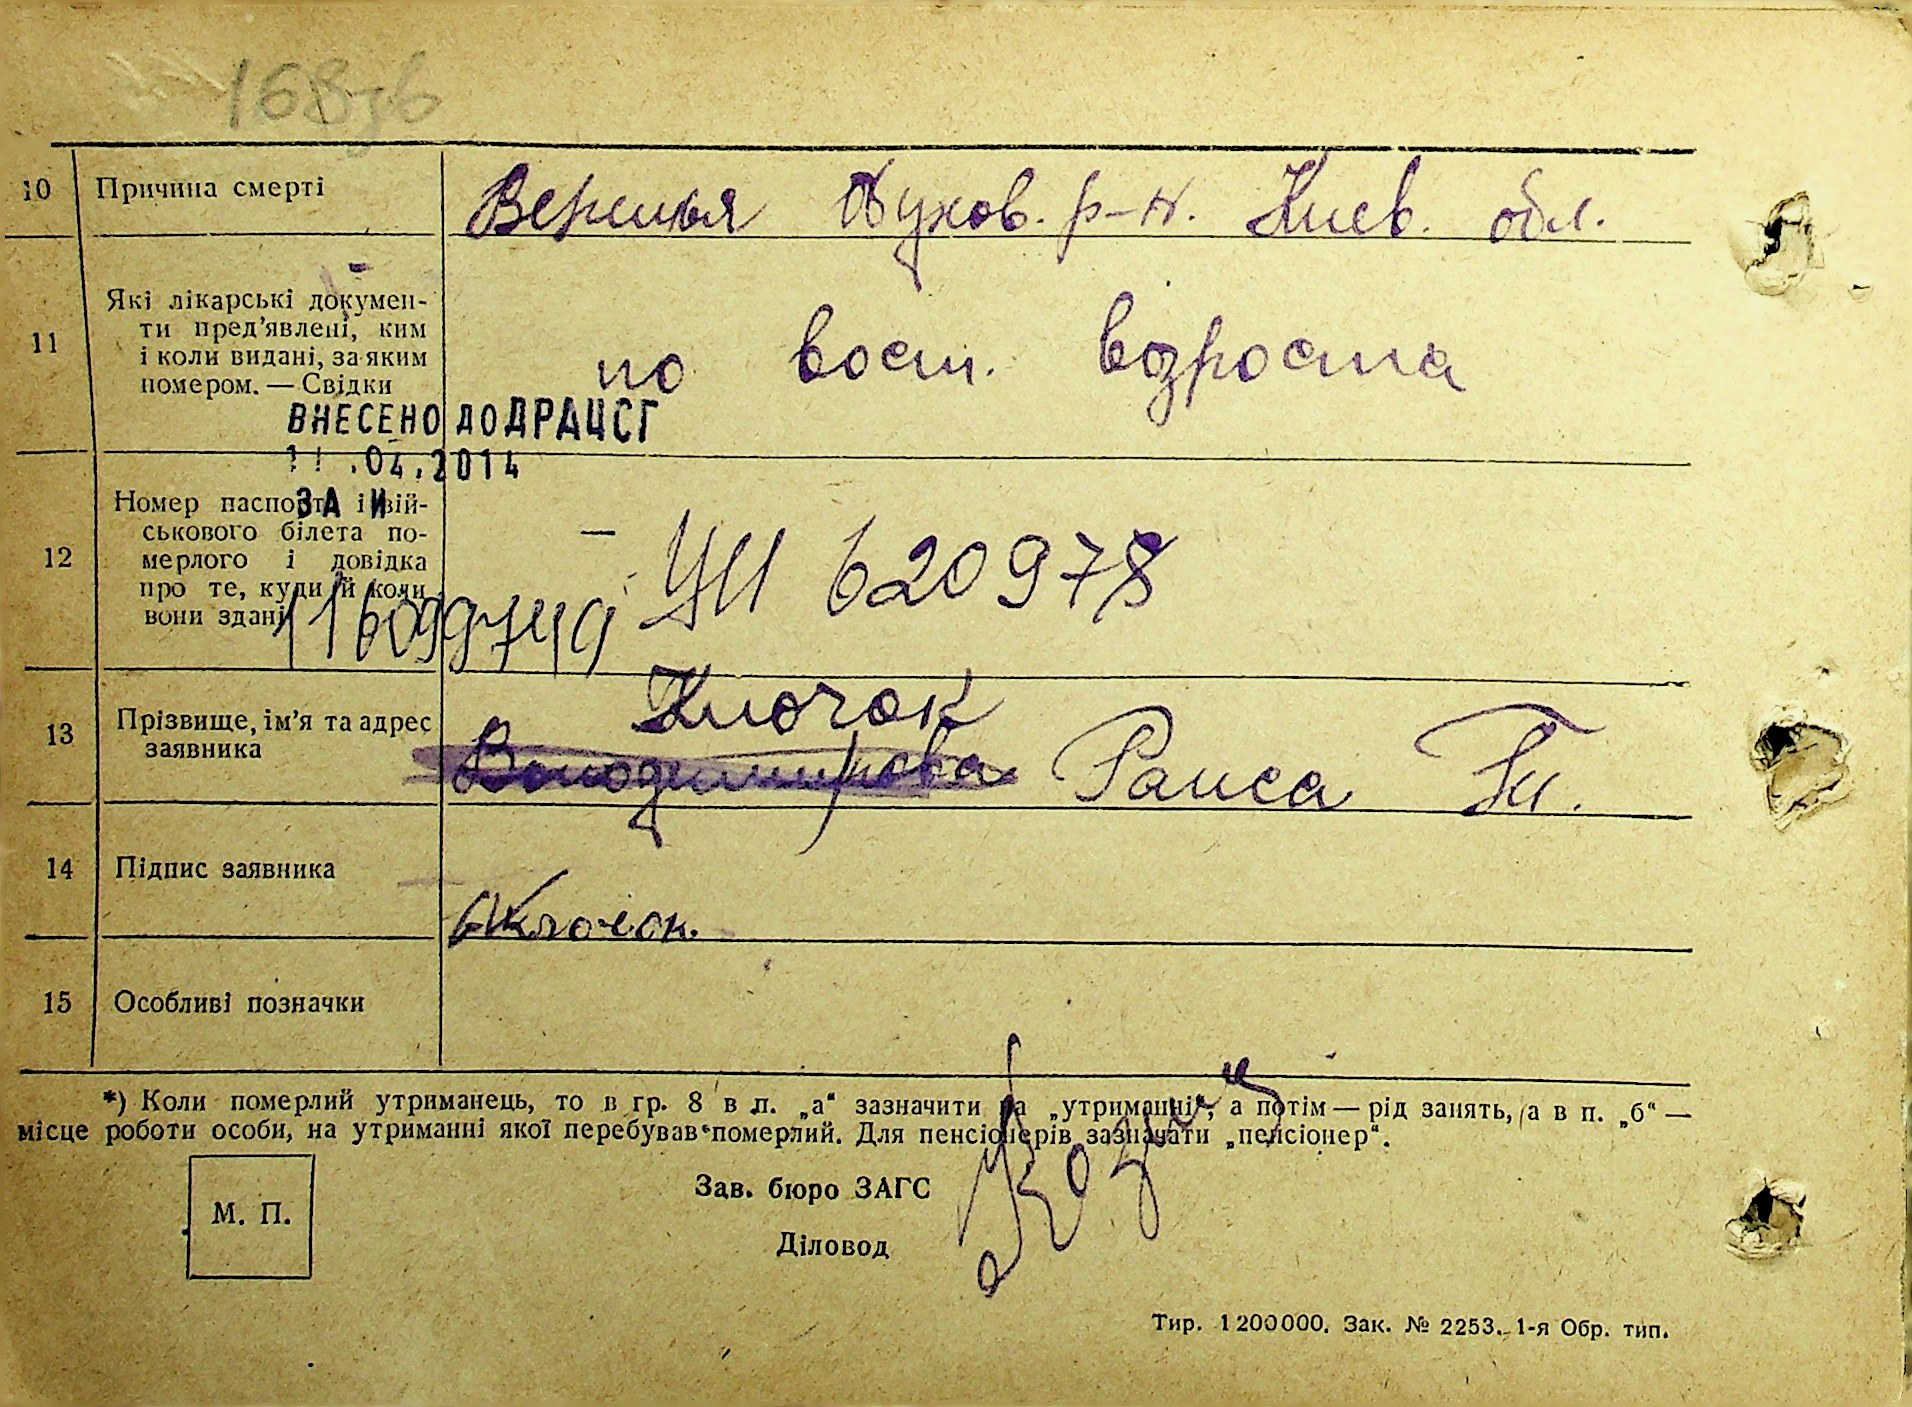 10 Причина смерті
Обухов. р-н. Киев. обл.
11 Які лікарські докумен-
ти пред'явлені, ким
і коли видані, за яким
номером. — Свідки
по восст. возраста
ВНЕСЕНО ДО ДРАЦСГ
11.04.2014
ЗА И
12 Номер паспорта і вій-
ськового білета по-
мерлого і довідка
про те, куди й коли
вони здані
— 620978
13 Прізвище, ім'я та адрес
заявника
Клочок
Володимирова Раиса
14 Підпис заявника
Клочок
15 Особливі позначки
*) Коли померлий утриманець, то в гр. 8 в п. „а“ зазначити на „утриманні“, а потім — рід занять, а в п. „б“ —
місце роботи особи, на утриманні якої перебував померлий. Для пенсіонерів зазначати „пенсіонер“.
М. П.
Зав. бюро ЗАГС
Діловод
Тир. 1200000. Зак. № 2253. 1-я Обр. тип.